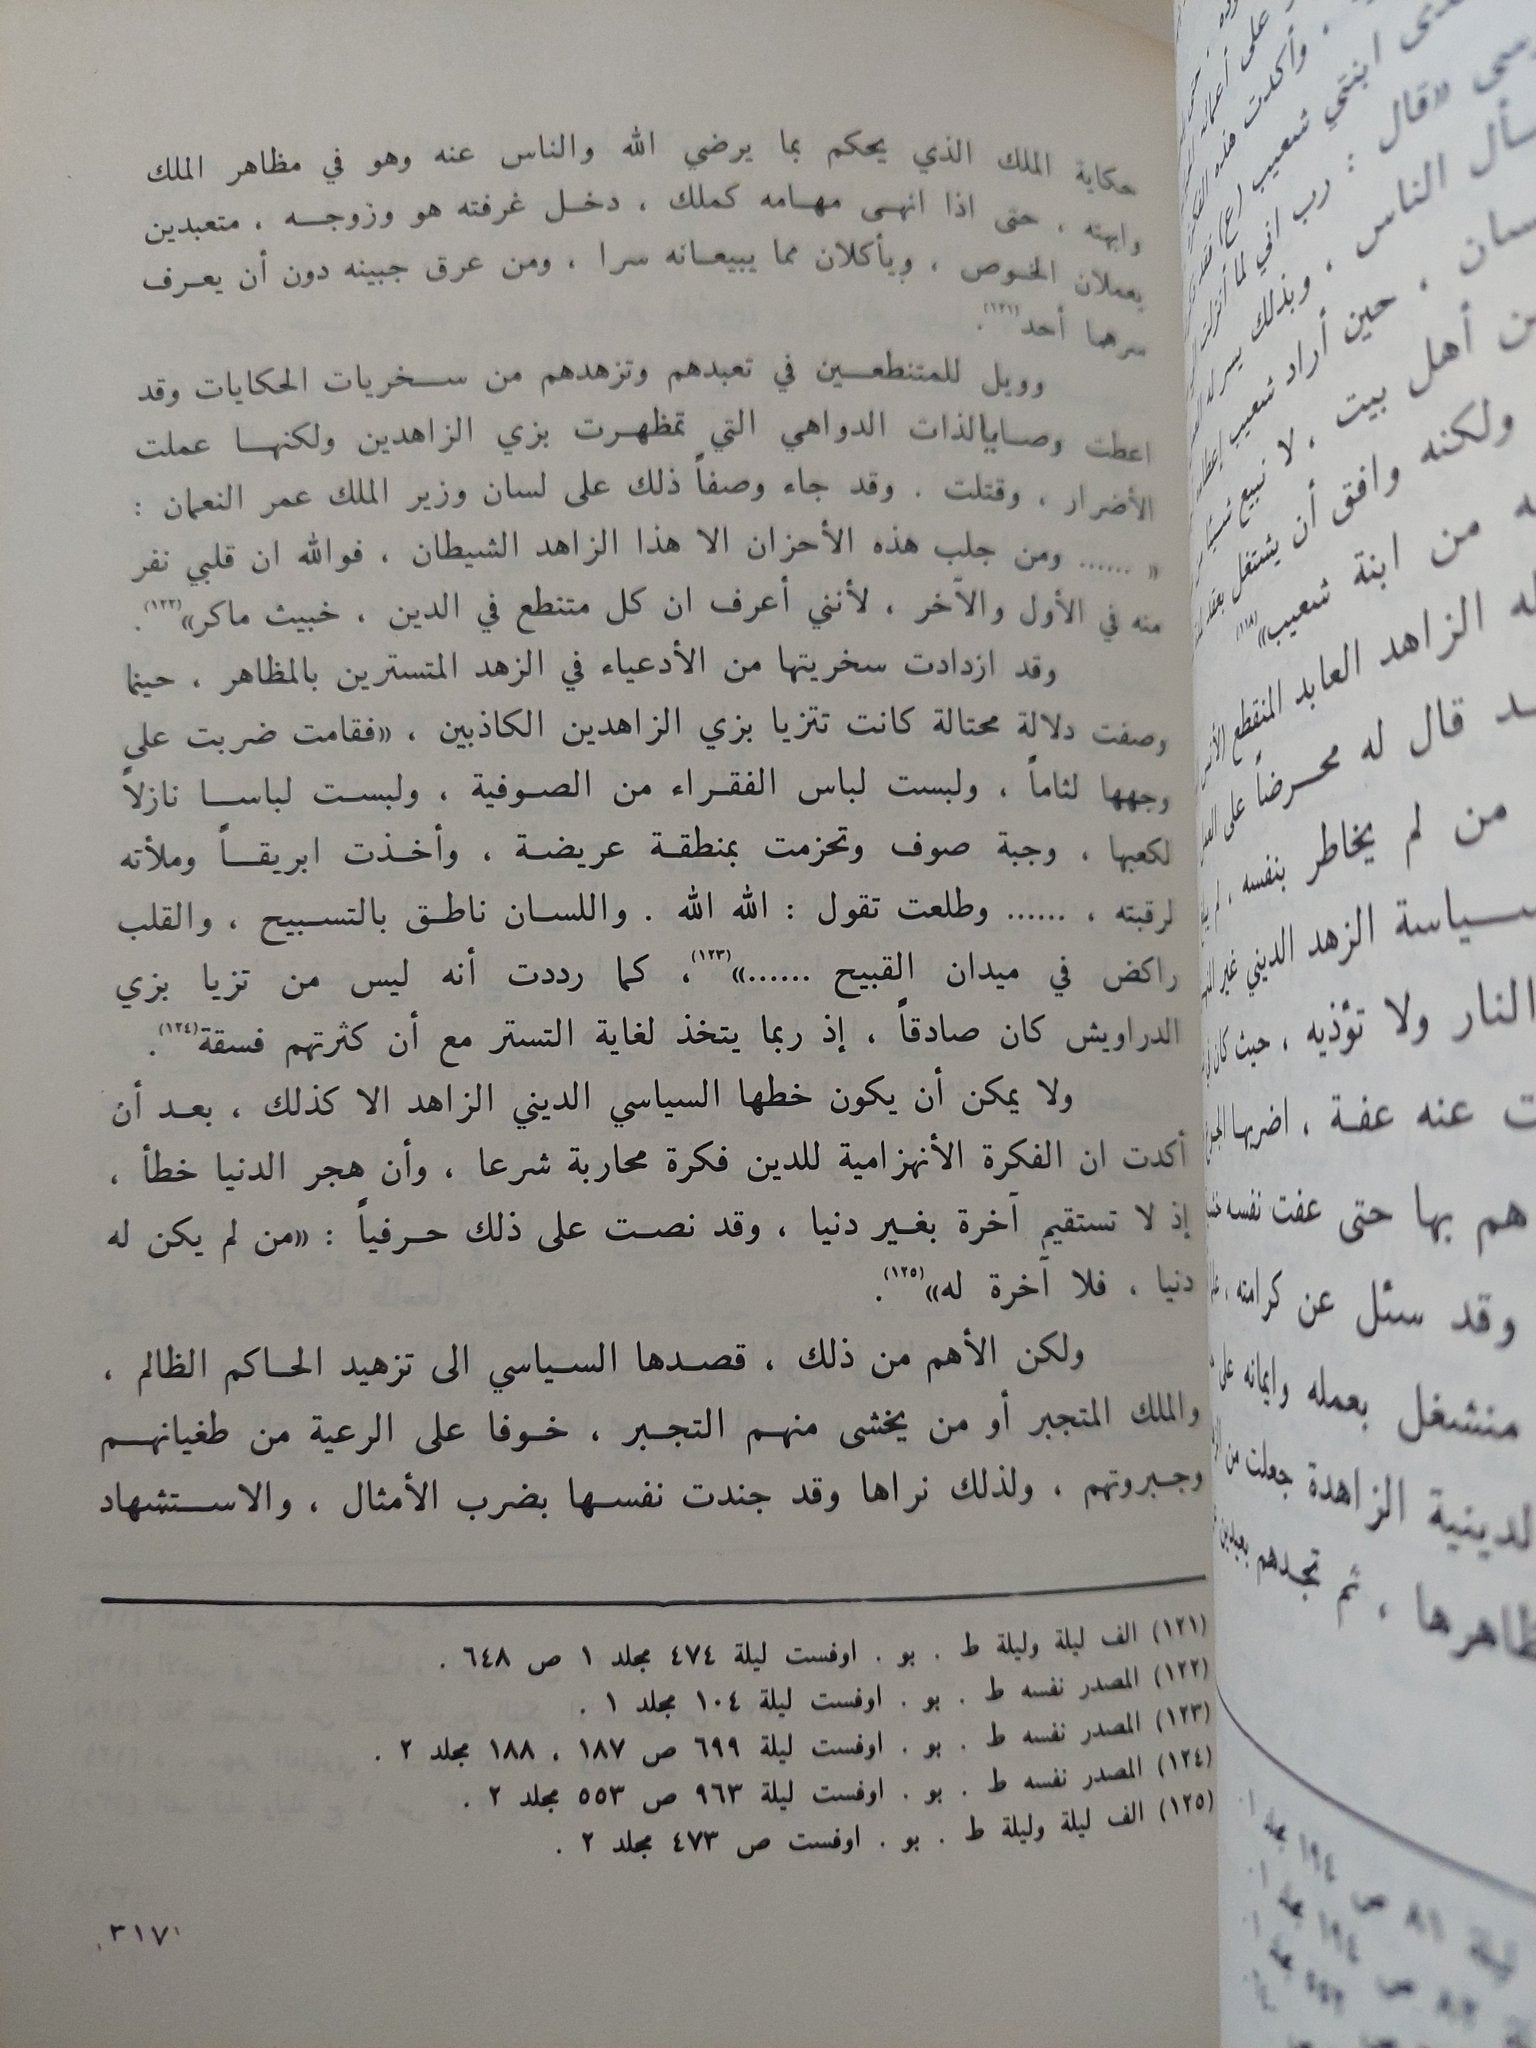 حكاية الملك الذي يحكم بما يرضي الله والناس عنه وهو في مظاهر الملك
وابهته ، حتى اذا انهى مهامه كملك ، دخل غرفته هو وزوجه ، متعبدين
يعملان الخوص ، ويأكلان مما يبيعانه سرا ، ومن عرق جبينه دون أن يعرف
سرهما أحد(١٢١).
وويل للمتنطعين في تعبدهم وتزهدهم من سخريات الحكايات وقد
اعطت وصايالذات الدواهي التي تمظهرت بزي الزاهدين ولكنها عملت
الأضرار ، وقتلت . وقد جاء وصفاً ذلك على لسان وزير الملك عمر النعمان :
« ...... ومن جلب هذه الأحزان الا هذا الزاهد الشيطان ، فوالله ان قلبي نفر
منه في الأول والآخر ، لأنني أعرف ان كل متنطع في الدين ، خبيث ماكر»(١٢٢).
وقد ازدادت سخريتها من الأدعياء في الزهد المتسترين بالمظاهر ، حينما
وصفت دلالة محتالة كانت تتزيا بزي الزاهدين الكاذبين ، «فقامت ضربت على
وجهها لثاماً ، ولبست لباس الفقراء من الصوفية ، ولبست لباسا نازلاً
لكعبها ، وجبة صوف وتحزمت بمنطقة عريضة ، وأخذت ابريقاً وملأته
لرقبته ، ...... وطلعت تقول : الله الله . واللسان ناطق بالتسبيح ، والقلب
راكض في ميدان القبيح ......»(١٢٣)، كما رددت أنه ليس من تزيا بزي
الدراويش كان صادقاً ، إذ ربما يتخذ لغاية التستر مع أن كثرتهم فسقة(١٢٤).
ولا يمكن أن يكون خطها السياسي الديني الزاهد الا كذلك ، بعد أن
أكدت ان الفكرة الأنهزامية للدين فكرة محاربة شرعا ، وأن هجر الدنيا خطأ ،
إذ لا تستقيم آخرة بغير دنيا ، وقد نصت على ذلك حرفياً : «من لم يكن له
دنيا ، فلا آخرة له»(١٢٥).
ولكن الأهم من ذلك ، قصدها السياسي الى تزهيد الحاكم الظالم ،
والملك المتجبر أو من يخشى منهم التجبر ، خوفا على الرعية من طغيانهم
وجبروتهم ، ولذلك نراها وقد جندت نفسها بضرب الأمثال ، والاستشهاد
(١٢١) الف ليلة وليلة ط . بو . اوفست ليلة ٤٧٤ مجلد ١ ص ٦٤٨ .
(١٢٢) المصدر نفسه ط . بو . اوفست ليلة ١٠٤ مجلد ١ .
(١٢٣) المصدر نفسه ط . بو . اوفست ليلة ٦٩٩ ص ١٨٧ ، ١٨٨ مجلد ٢ .
(١٢٤) المصدر نفسه ط . بو . اوفست ليلة ٩٦٣ ص ٥٥٣ مجلد ٢ .
(١٢٥) الف ليلة وليلة ط . بو . اوفست ص ٤٧٣ مجلد ٢ .
٣١٧
ابنتي شعيب (ع)
«قال : رب اني لما أنزلت
الناس ، وبذلك
حين أراد شعيب
أهل بيت ، لا نبيع
ولكنه وافق أن يشتغل
من ابنة شعيب»(١١٨)
الزاهد العابد المنقطع
قال له محرضاً على
من لم يخاطر بنفسه ، لم
سياسة الزهد الديني غير
النار ولا تؤذيه ، حيث كان
عنه عفة ، اضربها
هم بها حتى عفت نفسه
وقد سئل عن كرامته ،
منشغل بعمله وايمانه على
الزاهدة جعلت من
ثم تجدهم
ليلة ٨١ ص ١٩٤